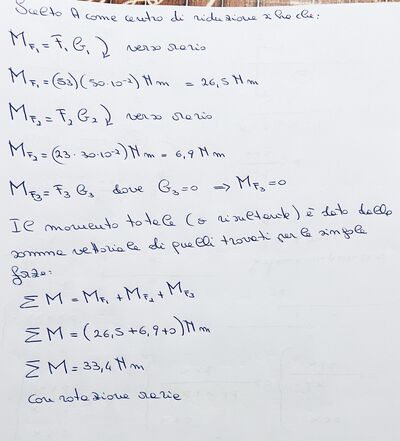 Scelto A come centro di riduzione x ho che:
M_F₁ = F₁ b₁ ⤵ verso orario
M_F₁ = (53)(50·10⁻²) N m = 26,5 N m
M_F₂ = F₂ b₂ ⤵ verso orario
M_F₂ = (23·30·10⁻²) N m = 6,9 N m
M_F₃ = F₃ b₃ dove b₃=0 ⇒ M_F₃=0
Il momento totale (o risultante) è dato dalla
somma vettoriale di quelli trovati per le singole
forze:
∑ M = M_F₁ + M_F₂ + M_F₃
∑ M = (26,5+6,9+0) N m
∑ M = 33,4 N m
con rotazione oraria